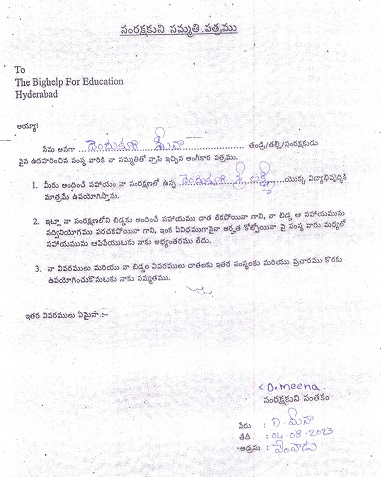 సంరక్షకుని సమ్మతి పత్రము
To
The Bighelp For Education
Hyderabad
అయ్యా!
నేను అనగా దెందుకూరి మీనా తండ్రి/తల్లి/సంరక్షకుడు
పైన ఉదహరించిన సంస్థ వారికి నా సమ్మతితో వ్రాసి ఇచ్చిన అంగీకార పత్రము.
1. మీరు అందించే సహాయం నా సంరక్షణలో ఉన్న దెందుకూరి యొక్క విద్యాభివృద్ధికి
మాత్రమే ఉపయోగిస్తాను.
2. ఇట్లా నా సంరక్షణలోని బిడ్డకు అందించే సహాయము దాత లేకపోయినా గాని, నా బిడ్డ ఆ సహాయమును
సద్వినియోగము పరచకపోయినా గాని, ఇంక ఏవిధముగానైనా అర్హత కోల్పోయినా పై సంస్థ వారు మధ్యలో
సహాయమును ఆపివేయుటకు నాకు అభ్యంతరము లేదు.
3. నా వివరములు మరియు నా బిడ్డల వివరములు దాతలకు ఇతర సంస్థలకు మరియు ప్రచారము కొరకు
ఉపయోగించుకొనుటకు నాకు సమ్మతము.
ఇతర వివరములు ఏమైనా :-
D.meena
సంరక్షకుని సంతకం
పేరు : D. మీనా
తేది : 04-08-2023
అడ్రసు :